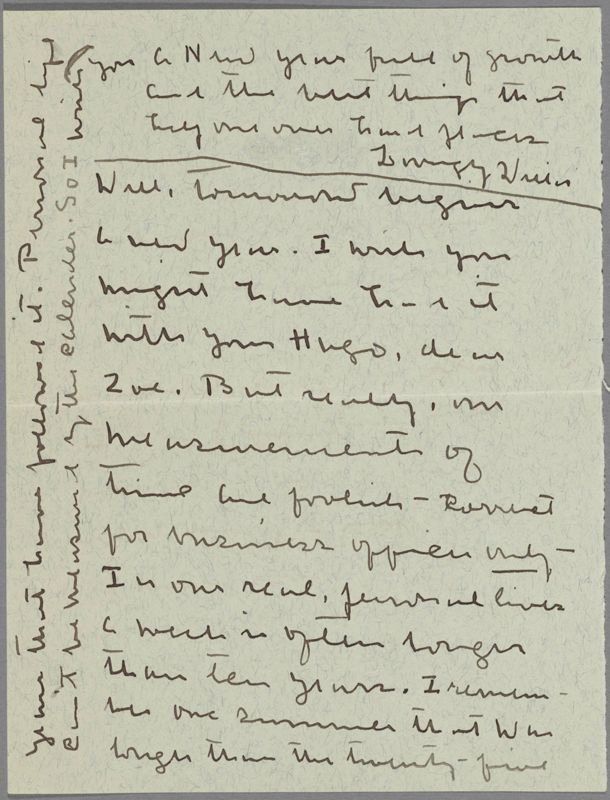 Well, tomorrow begins
a new year. I wish you
might have had it
with your Hugo, dear
Zoë. But really, our
measurements of
time are foolish – correct
for business offices only –
In our real, personal lives
a week is often longer
than ten years. I remem-
ber one summer that was
longer than the twenty-five
years that have followed it. Personal life
can't be measured by the calender. So I wish
you a New year full of growth
and the best things that
help one over hard places
Lovingly Willa